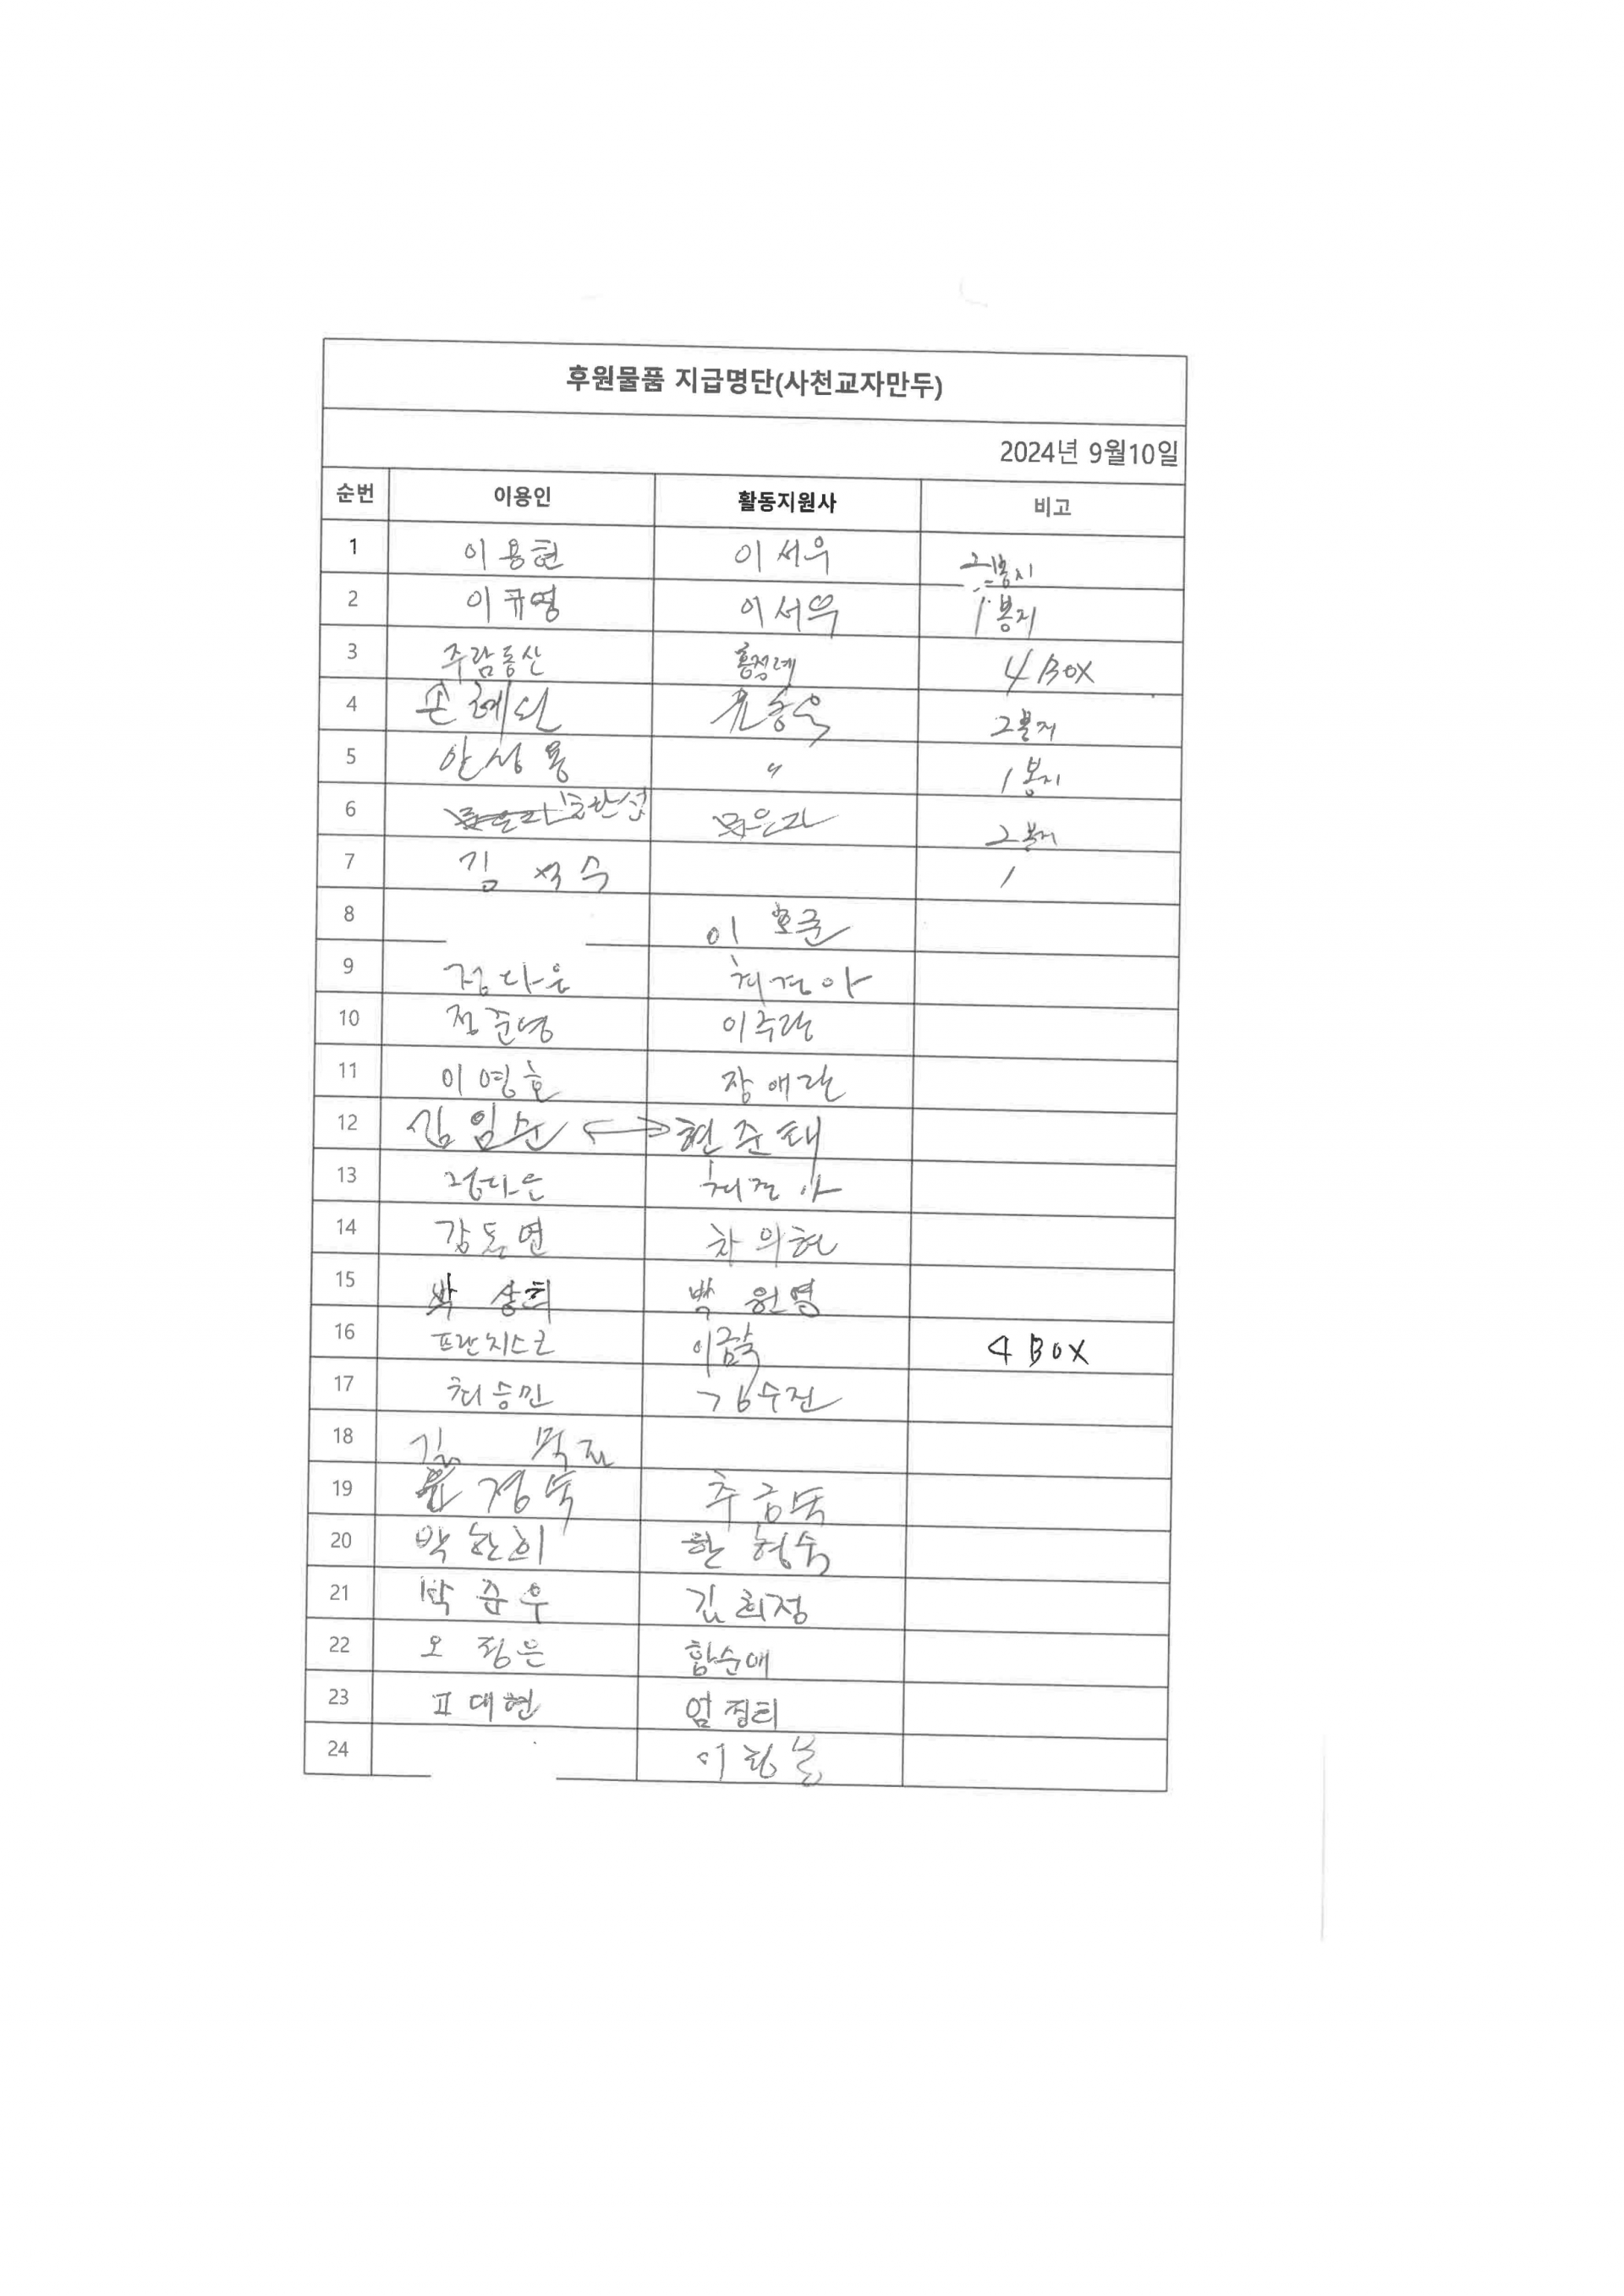 후원물품 지급명단(사천교자만두)
2024년 9월10일
순번 이용인 활동지원사 비고
1 이용현 이서우 2봉지
2 이규영 이서우 1봉지
3 주람동산 홍정례 4 BOX
4 손 2봉지
5 안성용 〃 1봉지
6 2봉지
7 김 수 /
8 이호준
9 정다은 최건아
10 정준영 이주랑
11 이영호 장애란
12 김임순 ↔ 현준태
13 정다은 최건아
14 강동연 차의현
15 박상희 박원영
16 프란치스코 이금숙 4 BOX
17 최승민 김수진
18 김
19 윤정숙 추금숙
20 박찬희 한형숙
21 박준우 김희정
22 오정은 함순애
23 표대현 엄정티
24 이